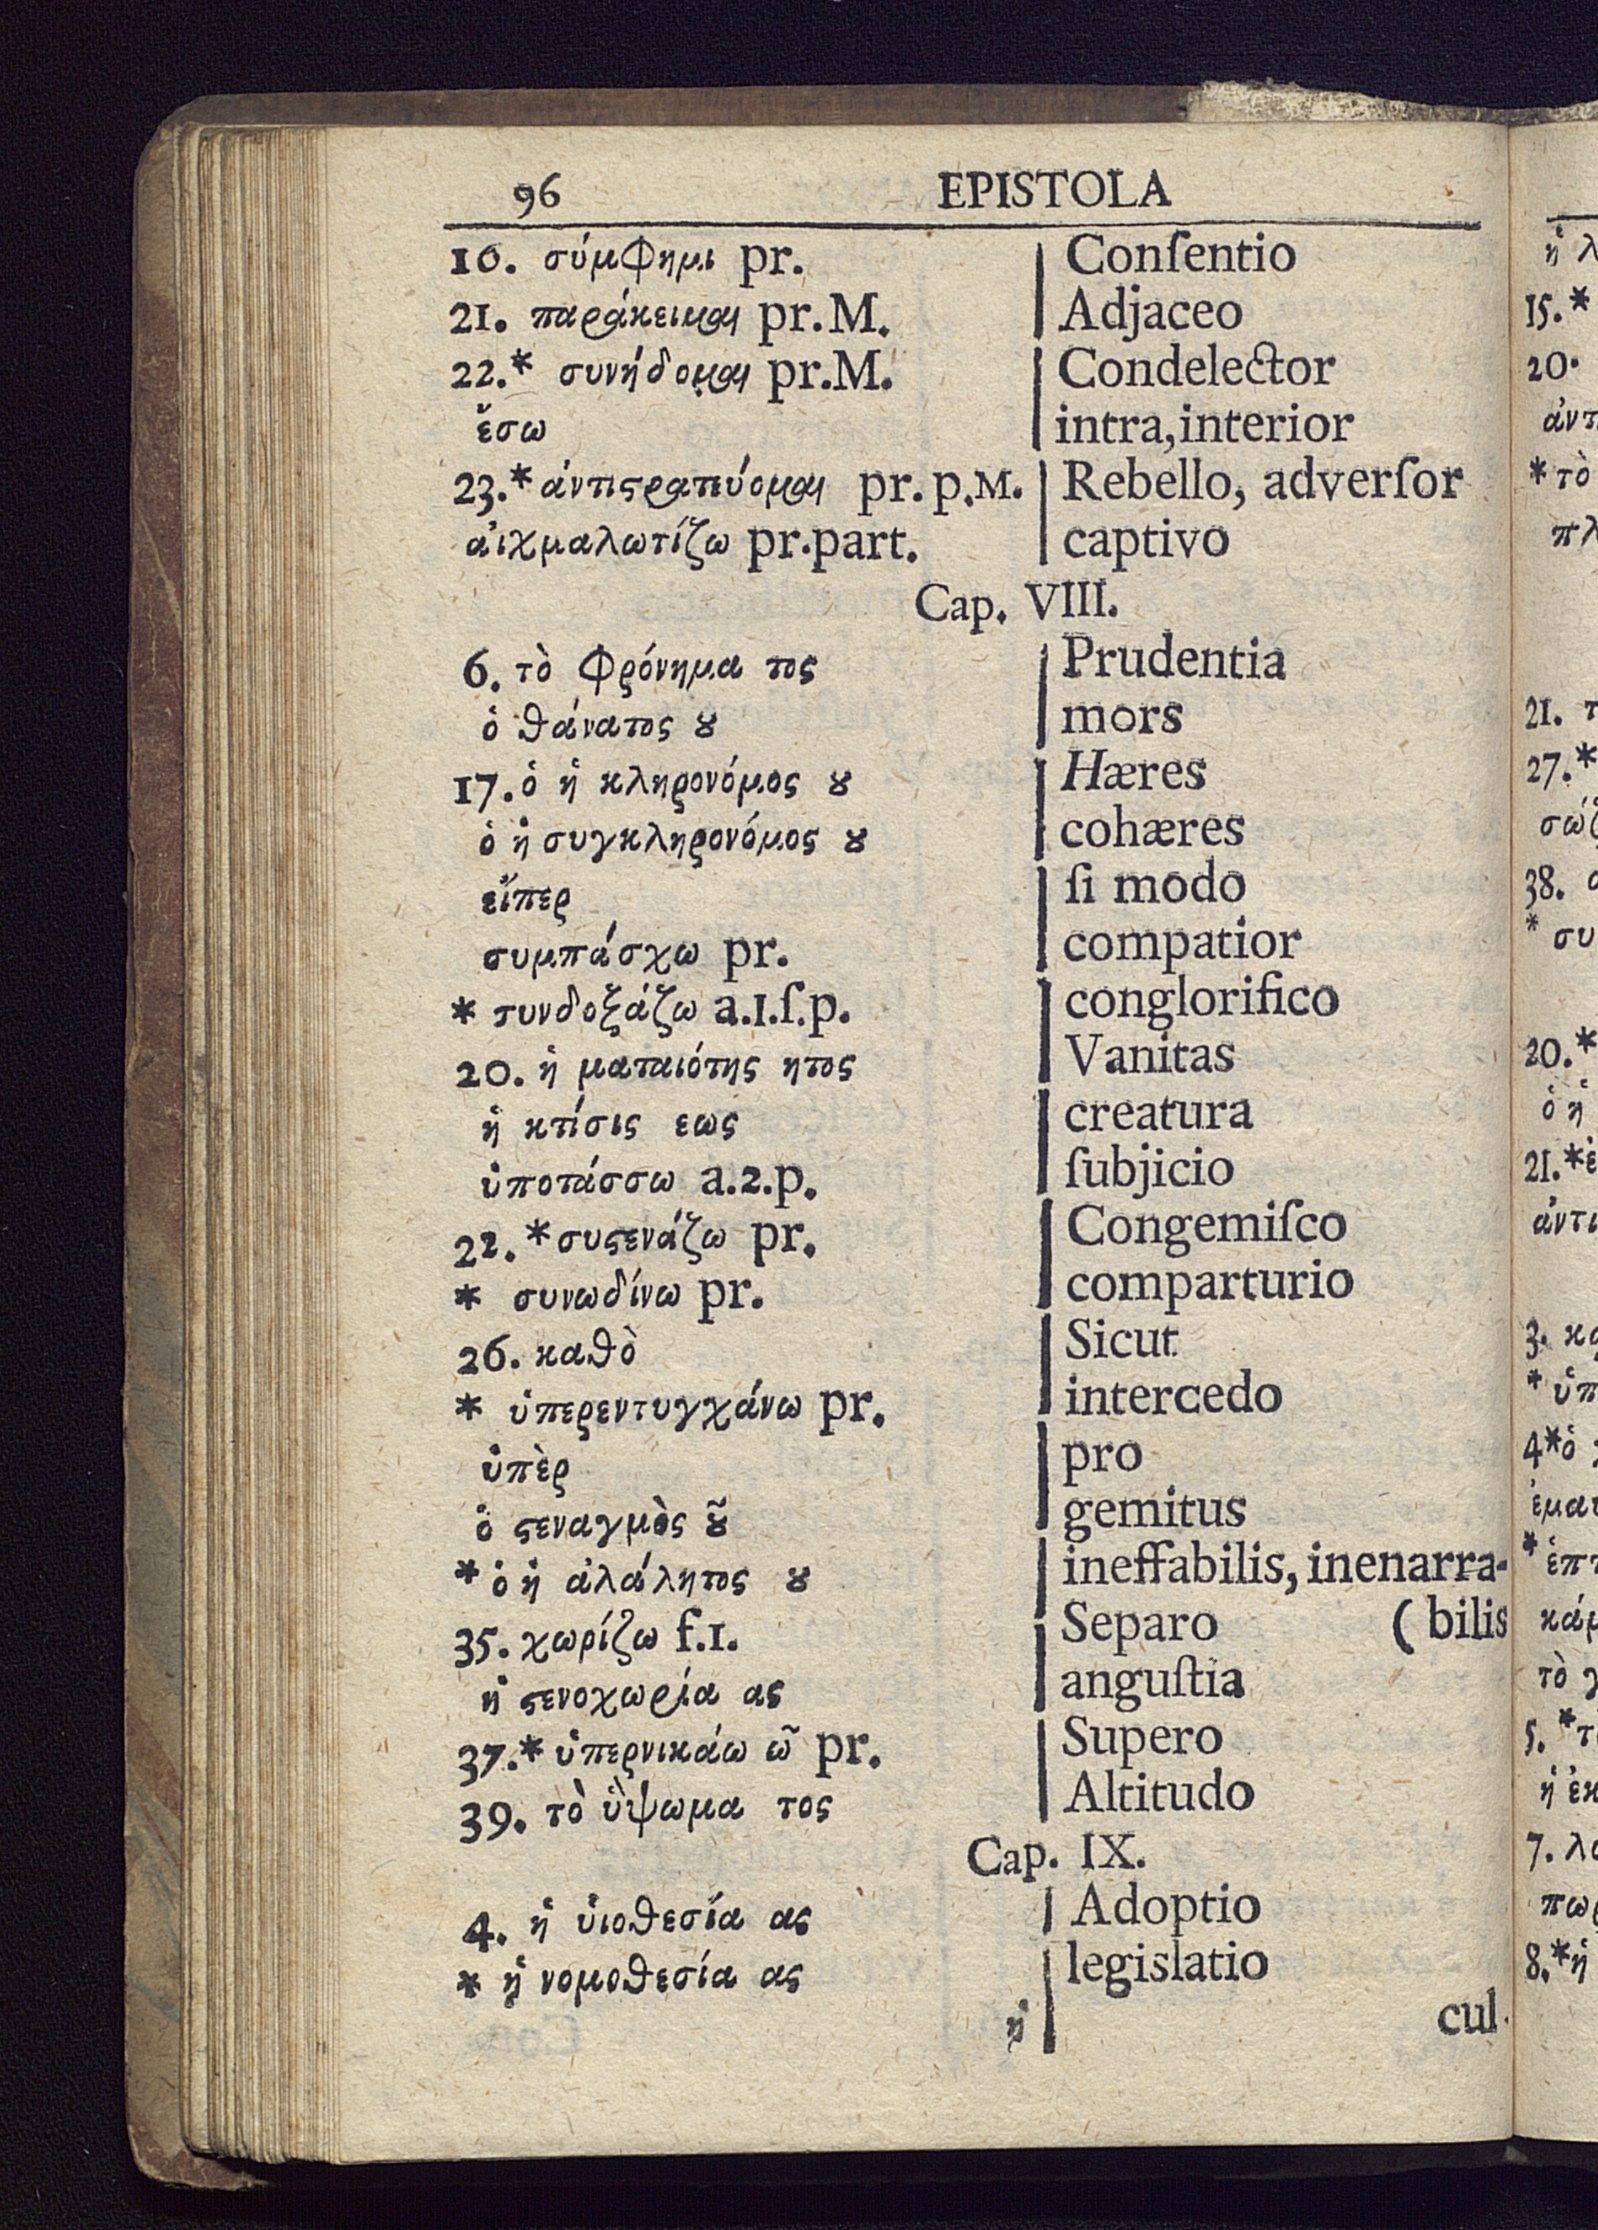 96 EPISTOLA
16. σύμφημι pr. | Conſentio
21. παράκειμαι pr.M. | Adjaceo
22.* συνήδομαι pr.M. | Condelector
ἔσω | intra, interior
23.* ἀντιϛρατεύομαι pr.p.M. | Rebello, adverſor
αἰχμαλωτίζω pr.part. | captivo
Cap. VIII.
6. τὸ φρόνημα τος | Prudentia
ὁ θάνατος ȣ | mors
17. ὁ ἡ κληρονόμος ȣ | Hæres
ὁ ἡ συγκληρονόμος ȣ | cohæres
εἴπερ | ſi modo
συμπάσχω pr. | compatior
* συνδοξάζω a.1.ſ.p. | conglorifico
20. ἡ ματαιότης ητος | Vanitas
ἡ κτίσις εως | creatura
ὑποτάσσω a.2.p. | ſubjicio
22. * συϛενάζω pr. | Congemiſco
* συνωδίνω pr. | comparturio
26. καθὸ | Sicut
* ὑπερεντυγχάνω pr. | intercedo
ὑπὲρ | pro
ὁ ϛεναγμὸς ȣ͂ | gemitus
* ὁ ἡ ἀλάλητος ȣ | ineffabilis, inenarra-
35. χωρίζω f.1. | Separo ( bilis
ἡ ϛενοχωρία ας | anguſtia
37.* ὑπερνικάω ῶ pr. | Supero
39. τὸ ὕψωμα τος | Altitudo
Cap. IX.
4. ἡ ὑιοθεσία ας | Adoptio
* ἡ νομοθεσία ας | legislatio
ἡ | cul-
ἡ λ
15.*
20.
ἀντ
* τὸ
πλ
21. τ
27.*
σώζ
38.
* συ
20.*
ὁ ἡ
21.*ἐ
ἀντι
3. κα
* ὑπ
4*ὁ
ἐμαυ
* ἐπτ
κάμ
τὸ γ
5. *τὸ
ἡ ἐκ
7. λο
πωρ
8.*ἡ